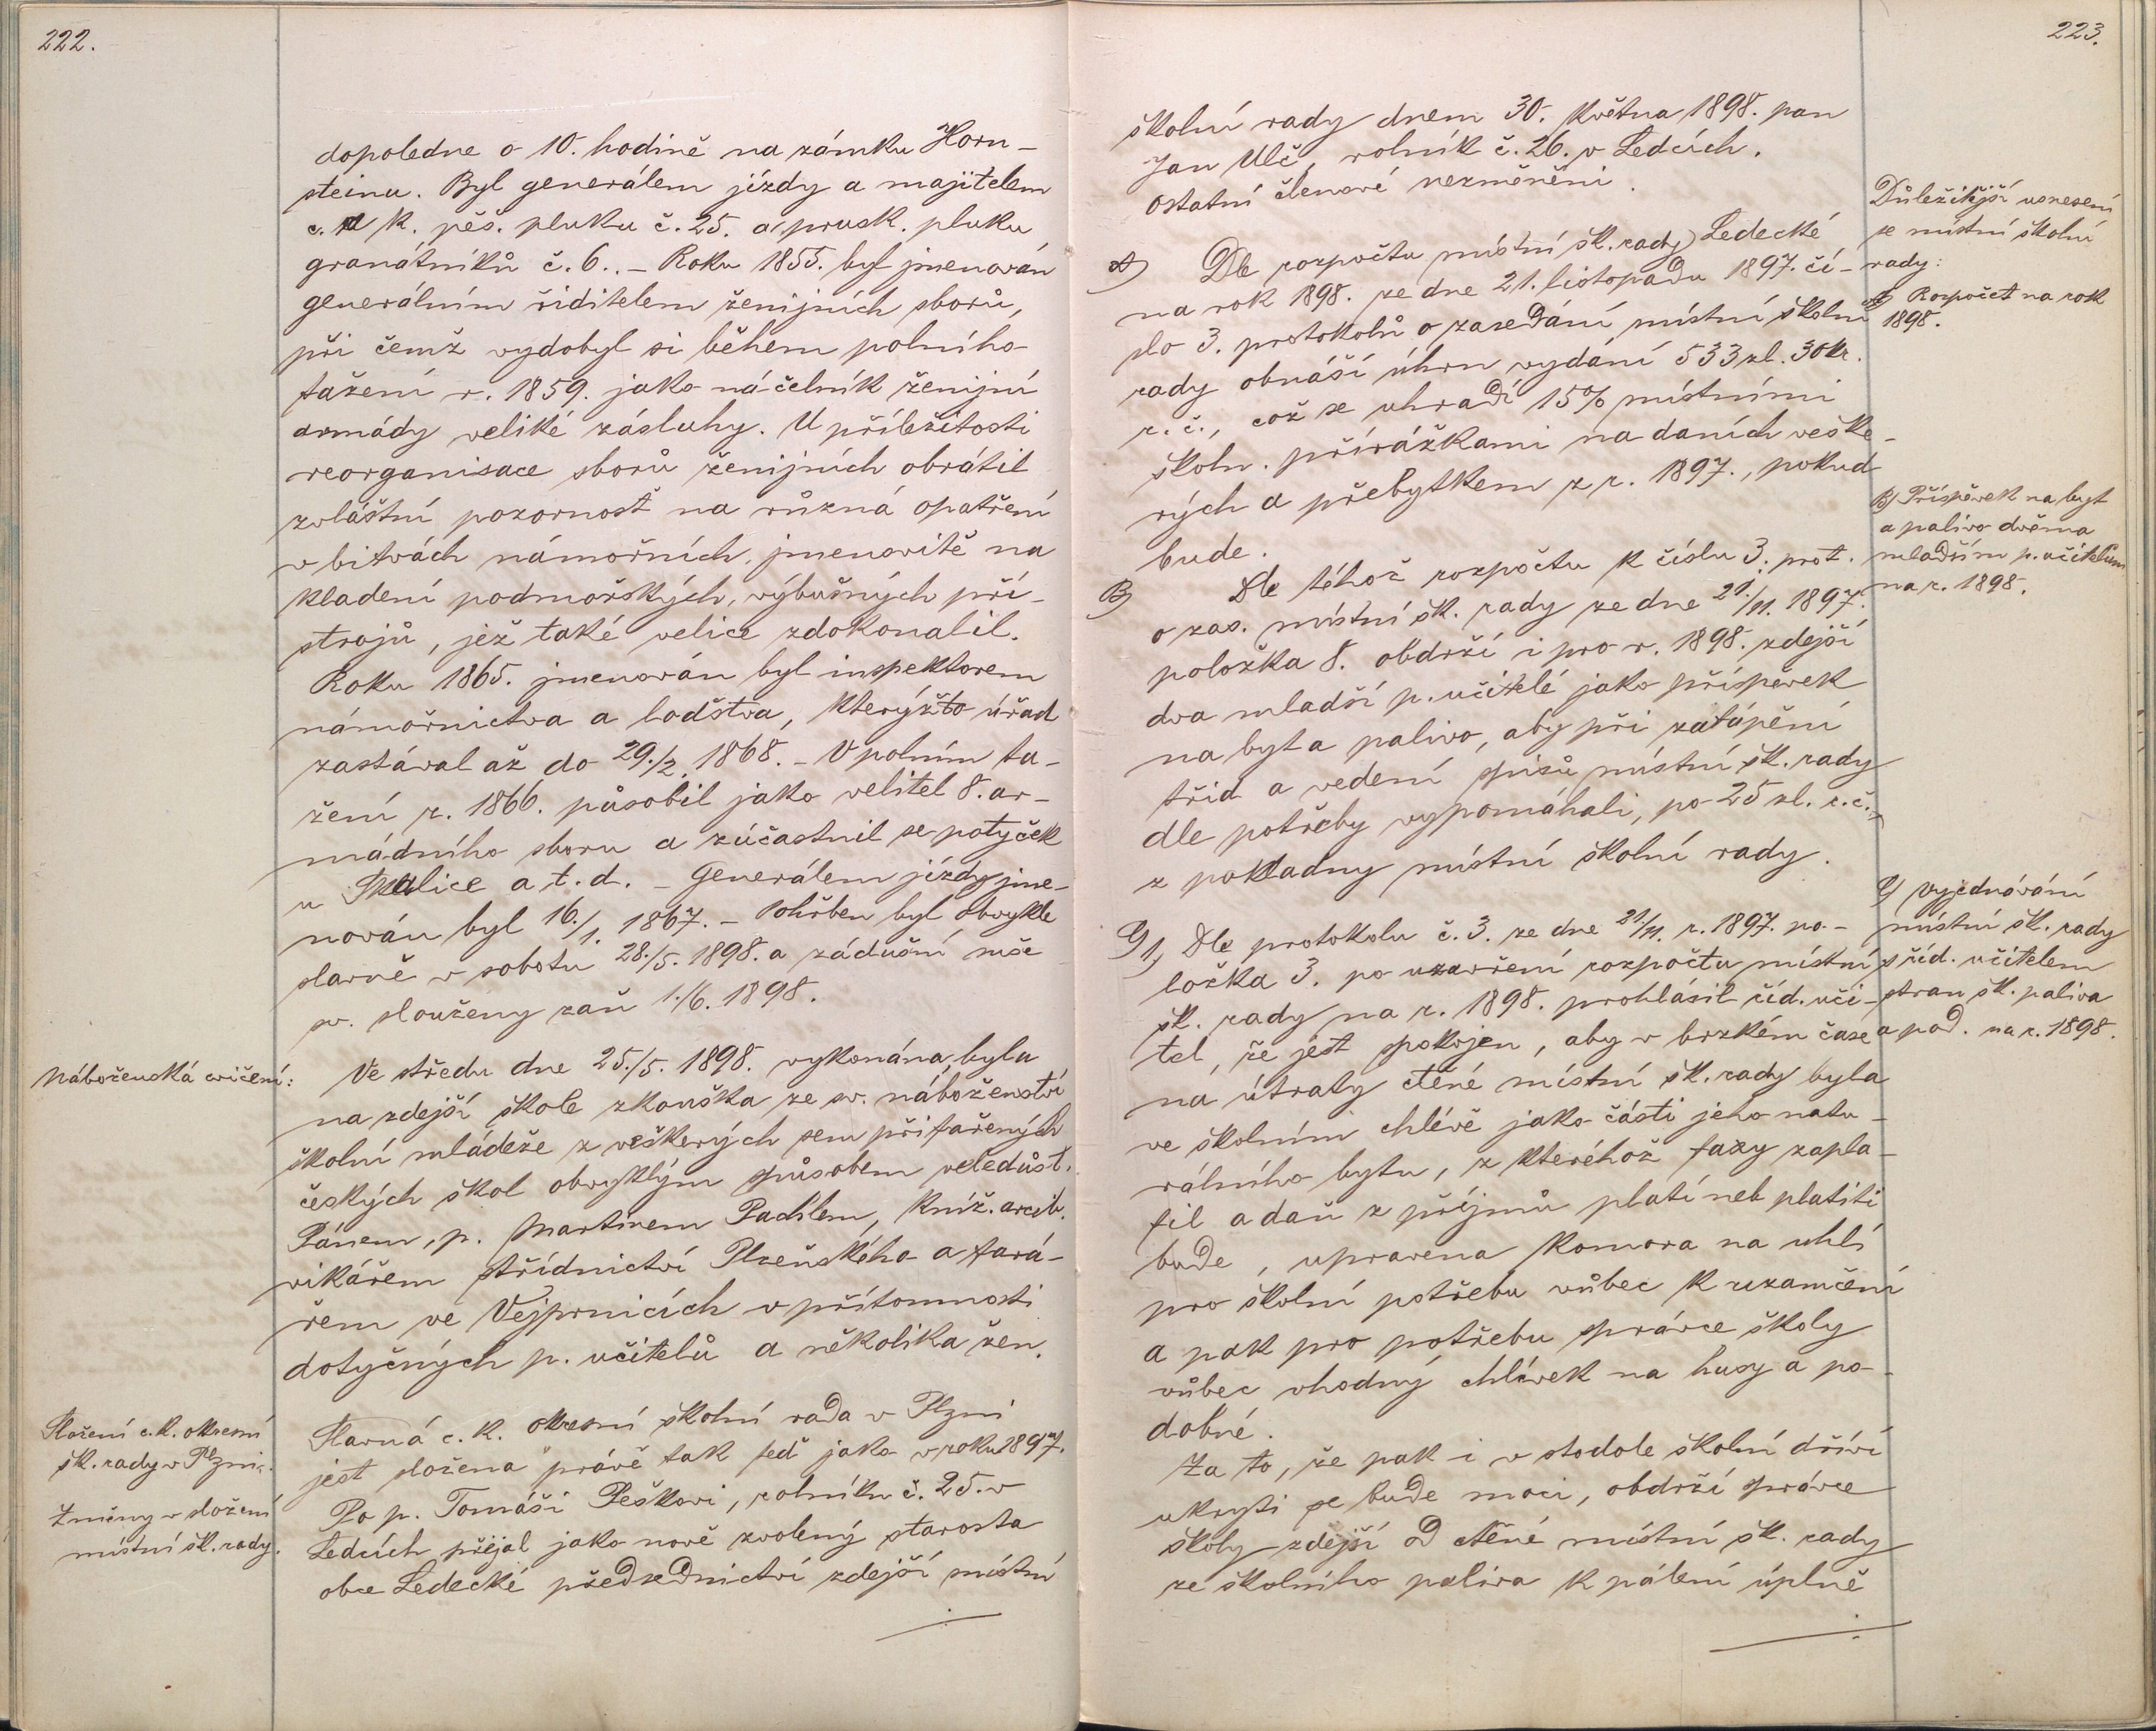 222.
dopoledne o 10. hodině na zámku Horn-
steinu. Byl generálem jízdy a majitelem
c. a k. pěš. pluku č. 25. a prusk. pluku
granátníků č. 6.. – Roku 1855. byl jmenován
generálním řiditelem ženijních sborů,
při čemž vydobyl si během polního
tažení r. 1859. jako náčelník ženijní
armády veliké zásluhy. U příležitosti
reorganisace sborů ženijních obrátil
zvláštní pozornosť na různá opatření
v bitvách námořních, jmenovitě na
kladení podmořských, výbušných pří-
strojů, jež také velice zdokonalil.
Roku 1865. jmenován byl inspektorem
námořnictva a loďstva, kterýžto úřad
zastával až do 29./2. 1868. – V polním ta-
žení r. 1866. působil jako velitel 8. ar-
mádního sboru a zúčastnil se potyček
u Skalice a t. d. – Generálem jízdy jme-
nován byl 16./1. 1867. – Pohřben byl obvykle
slavně v sobotu 28./5. 1898. a zádušní mše
sv. slouženy zaň 1./6. 1898.
Náboženská cvičení:
Ve středu dne 25./5. 1898. vykonána byla
na zdejší škole zkouška ze sv. náboženství
školní mládeže z veškerých sem přifařených
českých škol obvyklým způsobem veledůst.
Pánem, p. Martinem Pachlem, kníž. arcib.
vikářem střídnictví Plzeňského a fará-
řem ve Vejprnicích v přítomnosti
dotyčných p. učitelů a několika žen.
Složení c. k. okresní
šk. rady v Plzni.
Slavná c. k. okresní školní rada v Plzni
jest složena právě tak teď jako v roku 1897.
Změny v složení
místní šk. rady.
Po p. Tomáši Peškovi, rolníku č. 25. v
Ledcích přejal jako nově zvolený starosta
obce Ledecké předsednictví zdejší místní
223.
školní rady dnem 30. května 1898. pan
Jan Ulč, rolník č. 26. v Ledcích.
Ostatní členové nezměněni.
Důležitější usnesení
se místní školní
rady:
A) Rozpočet na rok
1898.
A) Dle rozpočtu místní šk. rady Ledecké
na rok 1898. ze dne 21. listopadu 1897. čí-
slo 3. protokolů o zasedání místní školní
rady obnáší úhrn vydání 533 zl. 30 kr.
r. č., což se uhradí 15% místními
školn. přirážkami na daních veške-
rých a přebytkem z r. 1897., pokud
bude.
B) Příspěvek na byt
a palivo dvěma
mladším p. učitelům
na r. 1898.
B) Dle téhož rozpočtu k číslu 3. prot.
o zas. místní šk. rady ze dne 21./11. 1897.
položka 8. obdrží i pro r. 1898. zdejší
dva mladší p. učitelé jako příspěvek
na byt a palivo, aby při zatápění
tříd a vedení spisů místní šk. rady
dle potřeby vypomáhali, po 25 zl. r. č.
z pokladny místní školní rady.
C) Vyjednávání
místní šk. rady
s říd. učitelem
stran šk. paliva
a pod. na r. 1898.
C) 1, Dle protokolu č. 3. ze dne 21./11. r. 1897. po-
ložka 3. po uzavření rozpočtu místní
šk. rady na r. 1898. prohlásil říd. uči-
tel, že jest spokojen, aby v brzkém čase
na útraty ctěné místní šk. rady byla
ve školním chlévě jako části jeho natu-
rálního bytu, z kteréhož taxy zapla-
til a daň z příjmů platí neb platiti
bude, upravena komora na uhlí
pro školní potřebu vůbec k uzamčení
a pak pro potřebu správce školy
vůbec vhodný chlívek na husy a po-
dobné.
Za to, že pak i v stodole školní dříví
ukrýti se bude moci, obdrží správce
školy zdejší od ctěné místní šk. rady
ze školního paliva k pálení úplně